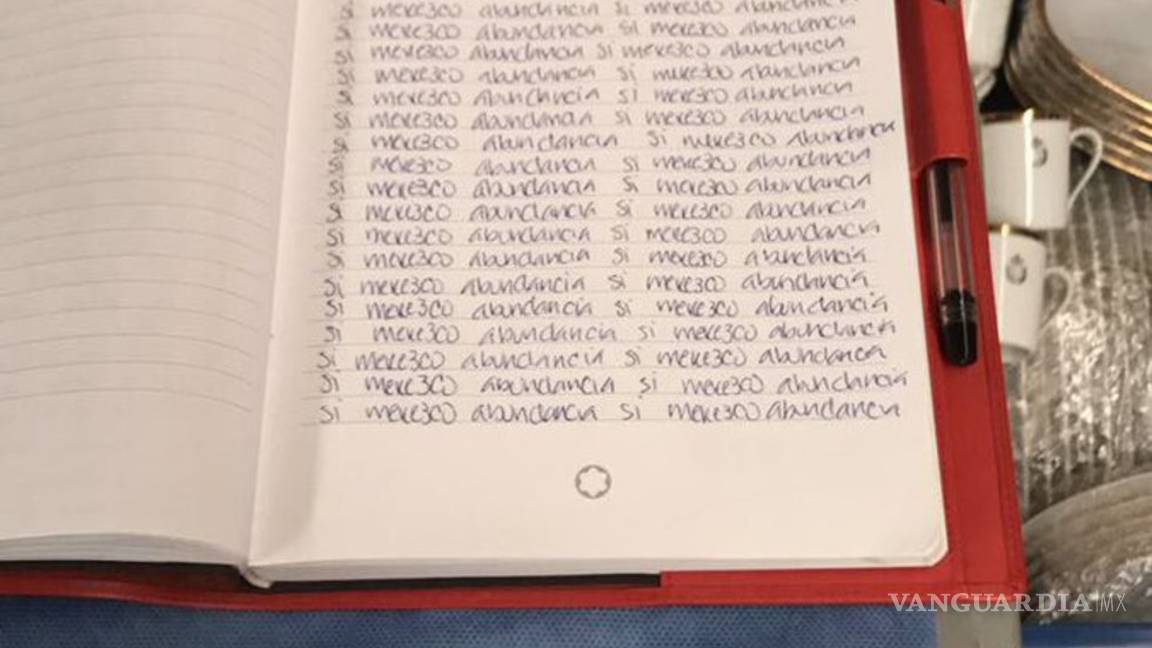 si merezco abundancia si merezco abundancia
si merezco abundancia si merezco abundancia
si merezco abundancia si merezco abundancia
si merezco abundancia si merezco abundancia
si merezco abundancia si merezco abundancia
si merezco abundancia si merezco abundancia
si merezco abundancia si merezco abundancia
si merezco abundancia si merezco abundancia
si merezco abundancia si merezco abundancia
si merezco abundancia si merezco abundancia
si merezco abundancia si merezco abundancia
si merezco abundancia si merezco abundancia
si merezco abundancia si merezco abundancia
si merezco abundancia si merezco abundancia
si merezco abundancia si merezco abundancia
si merezco abundancia si merezco abundancia
si merezco abundancia si merezco abundancia
si merezco abundancia si merezco abundancia
VANGUARDIA MX